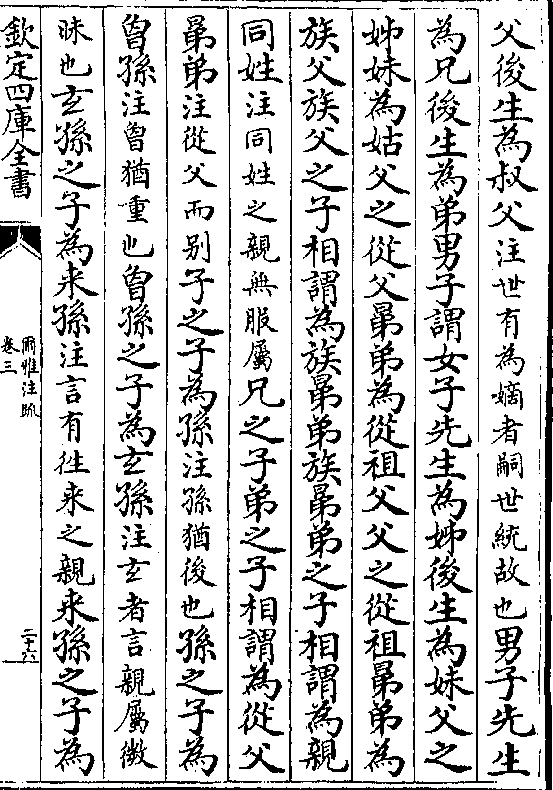 父後生為叔父注世有為嫡者嗣世統故也男子先生
為兄後生為弟男子謂女子先生為姊後生為妹父之
姊妹為姑父之從父晜弟為從祖父父之從祖晜弟為
族父族父之子相謂為族晜弟族晜弟之子相謂為親
同姓注同姓之親無服屬兄之子弟之子相謂為從父
晜弟注從父而别子之子為孫注孫猶後也孫之子為
曾孫注曾猶重也曾孫之子為玄孫注玄者言親屬微
昧也玄孫之子為来孫注言有徃来之親来孫之子為
欽定四庫全書
爾雅注疏
卷三
二十六